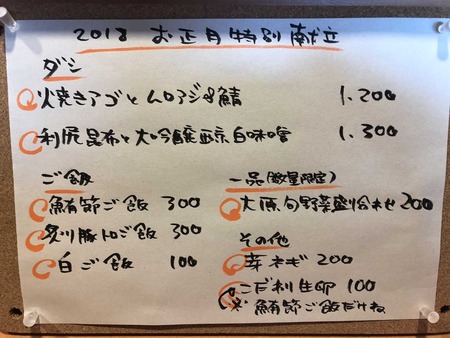 2018 お正月特別献立
ダシ
焼きアゴとムロアジ&鯖 1.200
利尻昆布と大吟醸西京白味噌 1.300
ご飯
鮪節ご飯 300
炙り豚トロご飯 300
白ご飯 100
一品(数量限定)
大原旬野菜盛り合わせ 200
その他
芽ネギ 200
こだわり生卵 100
※鮪節ご飯だけね